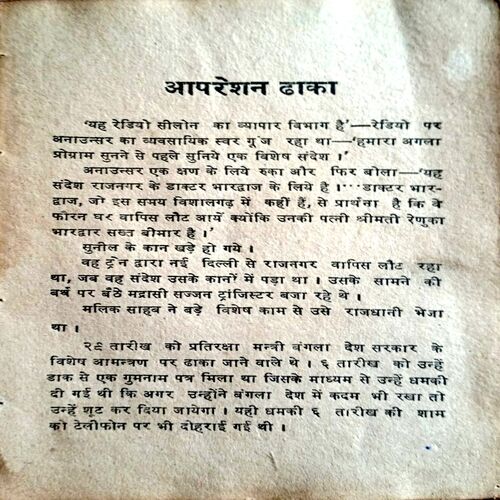 आपरेशन ढाका
'यह रेडियो सीलोन का व्यापार विभाग है'—रेडियो पर
अनाउन्सर का व्यवसायिक स्वर गूंज रहा था—'हमारा अगला
प्रोग्राम सुनने से पहले सुनिये एक विशेष संदेश।'
अनाउन्सर एक क्षण के लिये रुका और फिर बोला—'यह
संदेश राजनगर के डाक्टर भारद्वाज के लिये है।···डाक्टर भार-
द्वाज, जो इस समय विशालगढ़ में कहीं हैं, से प्रार्थना है कि वे
फौरन घर वापिस लौट आयें क्योंकि उनकी पत्नी श्रीमती रेणुका
भारद्वार सख्त बीमार है।'
सुनील के कान खड़े हो गये।
वह ट्रेन द्वारा नई दिल्ली से राजनगर वापिस लौट रहा
था, जब वह संदेश उसके कानों में पड़ा था। उसके सामने की
बर्थ पर बैठे मद्रासी सज्जन ट्रांजिस्टर बजा रहे थे।
मलिक साहब ने बड़े विशेष काम से उसे राजधानी भेजा
था।
२९ तारीख को प्रतिरक्षा मन्त्री बंगला देश सरकार के
विशेष आमन्त्रण पर ढाका जाने वाले थे। ६ तारीख को उन्हें
डाक से एक गुमनाम पत्र मिला था जिसके माध्यम से उन्हें धमकी
दी गई थी कि अगर उन्होंने बंगला देश में कदम भी रखा तो
उन्हें शूट कर दिया जायेगा। यही धमकी ६ तारीख की शाम
को टेलीफोन पर भी दोहराई गई थी।